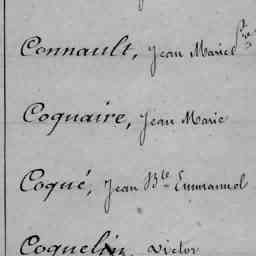 Connault, Jean Marie
Coquaire, Jean Marie
Coqué, Jean Bte Emmanuel
Coquelin, Victor